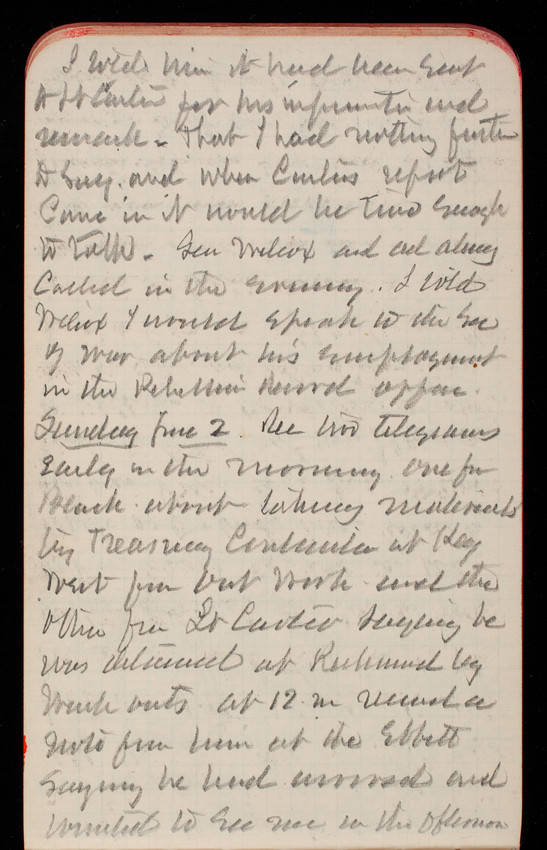 I told him it had been sent
to Lt Carter for his information and
remark - That I had nothing further
to say. and when Carters report
Came in it would be time enough
to talk - Gen Wilcox and
Called in the evening. I told
Wilcox I would speak to the Sec
of War about his employment
in the Rebellion Record office.
Sunday June 2. Rec two telegrams
Early in the morning one from
Black about taking materials
by Treasury Contractor at Key
West from out work and the
other from Lt Carter saying he
was detained at Richmond by
Wash outs. at 12 m received a
note from him at the Ebbitt
Saying he had arrived and
wanted to See me in the afternoon